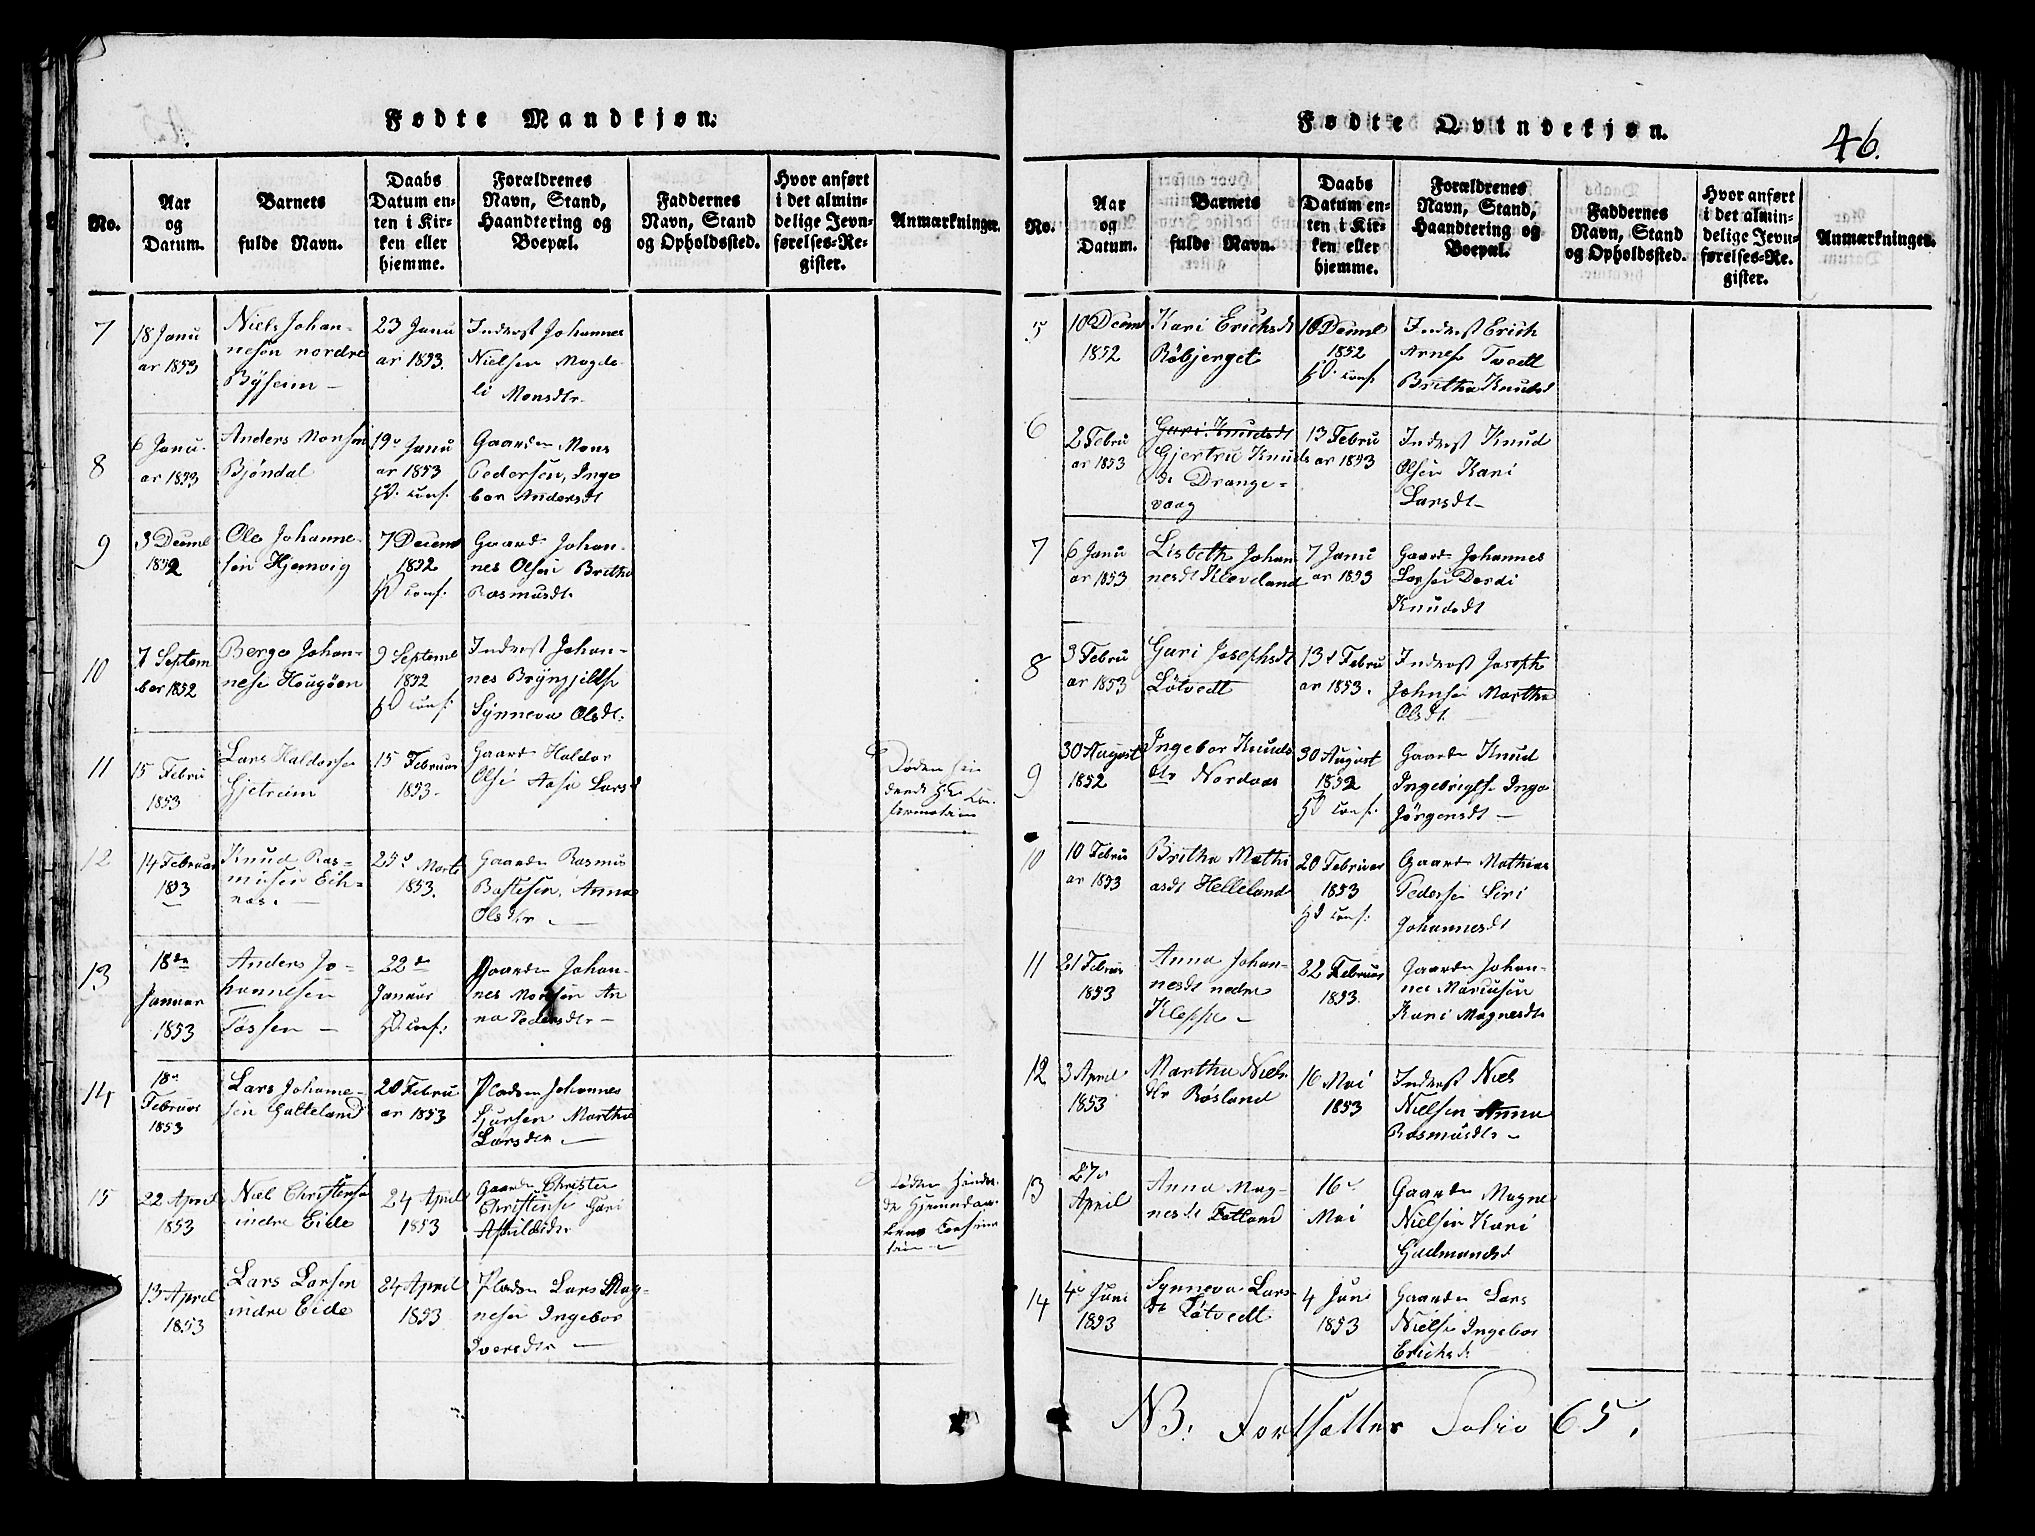 Fødte Mandkjøn.
No.
Aar
og
Datum.
Barnets
fulde Navn.
Daabs
Datum en-
ten i Kir-
ken eller
hjemme.
Forældrenes
Navn, Stand,
Haandtering og
Boepæl.
Faddernes
Navn, Stand
og Opholdssted.
Hvor anført
i det almin-
delige Jevn-
førelses-Re-
gister.
Anmærkninger.
7
18 Janu
ar 1853
Niels Johan-
nesen nordre
Byseim
23 Janu
ar 1853.
Inderst Johannes
Nielsen Magde
li Monsdtr.
8
6 Janu
ar 1853
Anders Monsen
Bjöndal
19 Janu
ar 1853
HD. conf.
Gaardm Mons
Pedersen, Inge
bor Andersdt
9
3 Deceml
1852
Ole Johanne-
sen Hjemvig
7 Decem
1852
HD conf.
Gaard Johan-
nes Olsen Britha
Rasmusdt.
10
7 Septem
ber 1852
Berge Johan-
nese Hougöen
9 Septeml
1852
HD conf.
Inderst Johan-
nes Brÿngjillse
Synneva Olsdt.
11
15 Febru
1853
Lars Haldorsen
Gjetreim
15 Februar
1853.
Gaard Haldor
Olse Aase Larsd
12
14 Februar
1853
Knud Ras-
musen Eik-
nes.
25 Marts
1853.
Gaardm Rasmus
Bastesen, Anna
Olsdtr
13
18de
Januar
1853
Anders Jo-
hannesen
Tössen
22de
Januar
HD conf.
Gaardm Johan-
nes Monsen An
na Pedersdtr
14
18
Februar
1853
Lars Johanne-
sen Galteland
20 Febru
ar 1853
Pladsm Johannes
Sjursen Martha
Larsdtr
15
22 April
1853
Niel Christense
indre Eide
24 April
1853
Gaardm Christen
Christense Guri
13 April
1853
Lars Larsen
indre Eide
24 April
1853
Pladsm Lars Mag-
nesen Ingebor
Iversdtr
Fødte Qvindekjøn.
46.
No.
Aar
og
Datum.
Barnets
fulde Navn.
Daabs
Datum en-
ten i Kir-
ken eller
hjemme.
Forældrenes
Navn, Stand,
Haandtering og
Boepæl.
Faddernes
Navn, Stand
og Opholdssted.
Hvor anført
i det almin-
delige Jevn-
førelses-Re-
gister.
Anmærkninger.
5
10 Decem
1852
Kari Erichsdt
Röbjerget
10 Deceml
1852
HD. conf
Inderst Erich
Arnese Tvedt
Britha Knudsd
6
2 Febru
ar 1853
Guri Knudsdt
Gjertru Knuds
dt Drange-
vaag
13 Febru
ar 1853
Inderst Knud
Olsen Kari
Larsdt
7
6 Janu
ar 1853
Lisbeth Johan
nesdt Kleveland
7 Janu
ar 1853
Gaard Johannes
Larsen Dordi
Knudsdt
8
3 Febru
ar 1853
Guri Josephsdt
Lötvedt
13 Febru
ar 1853.
Inderst Joseph
Johnsen Martha
Olsdt
9
30 August
1852
Ingebor Knuds
dtr Nordvas
30 August
1852
HD conf.
Gaardm Knud
Ingebrigtse Inga
Jörgensdt
10
10 Febru
ar 1853
Britha Mathi
asdt Helleland
20 Februar
1853
HD conf.
Gaard Mathias
Pedersen Siri
Johannesdt
11
21 Februar
1853
Anna Johan-
nesdt nedre
Kleppe
22 Februar
1853.
Gaardm Johan-
nes Mariusen
Kari Magnesdtr
12
3 April
1853
Martha Niels
dtr Rösland
16 Mai
1853
Inderst Niels
Nielsen Anna
Rasmusdtr
13
27
April
Anna Mag-
nesdt Tetland
16
Mai
Gaardm Magne
Nielsen Kari
Gudmundsd
14
4 Juni
1853
Synneva Lars
dt Lötvedt
4 Juni
1853
Gaardm Lars
Nielse Ingebor
Erichsd.
NB. Fortsættes Folio 65.